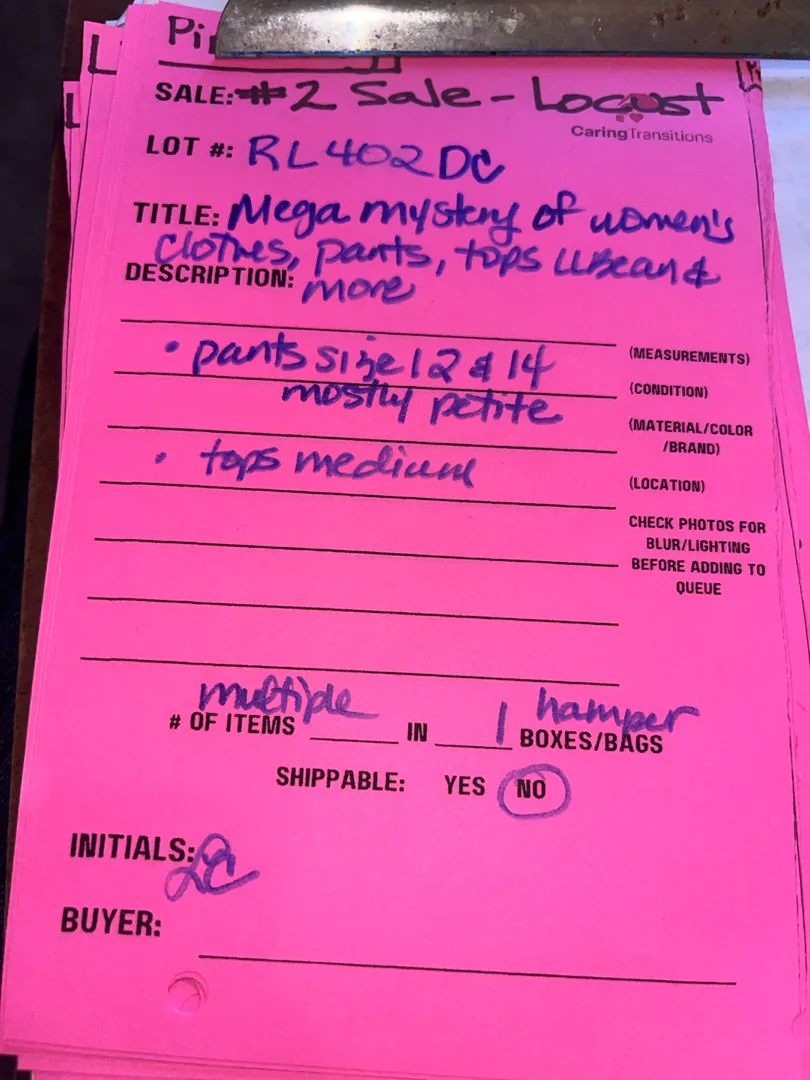 Pi
SALE: #2 Sale - Locust
CaringTransitions
LOT #: RL402DC
TITLE: Mega mystery of women's
clothes, pants, tops LLBean &
DESCRIPTION: more
(MEASUREMENTS)
• pants size 12 & 14
(CONDITION)
mostly petite
(MATERIAL/COLOR
/BRAND)
• tops medium
(LOCATION)
CHECK PHOTOS FOR
BLUR/LIGHTING
BEFORE ADDING TO
QUEUE
multiple 1 hamper
# OF ITEMS ______ IN ______ BOXES/BAGS
SHIPPABLE: YES NO
INITIALS: DC
BUYER: